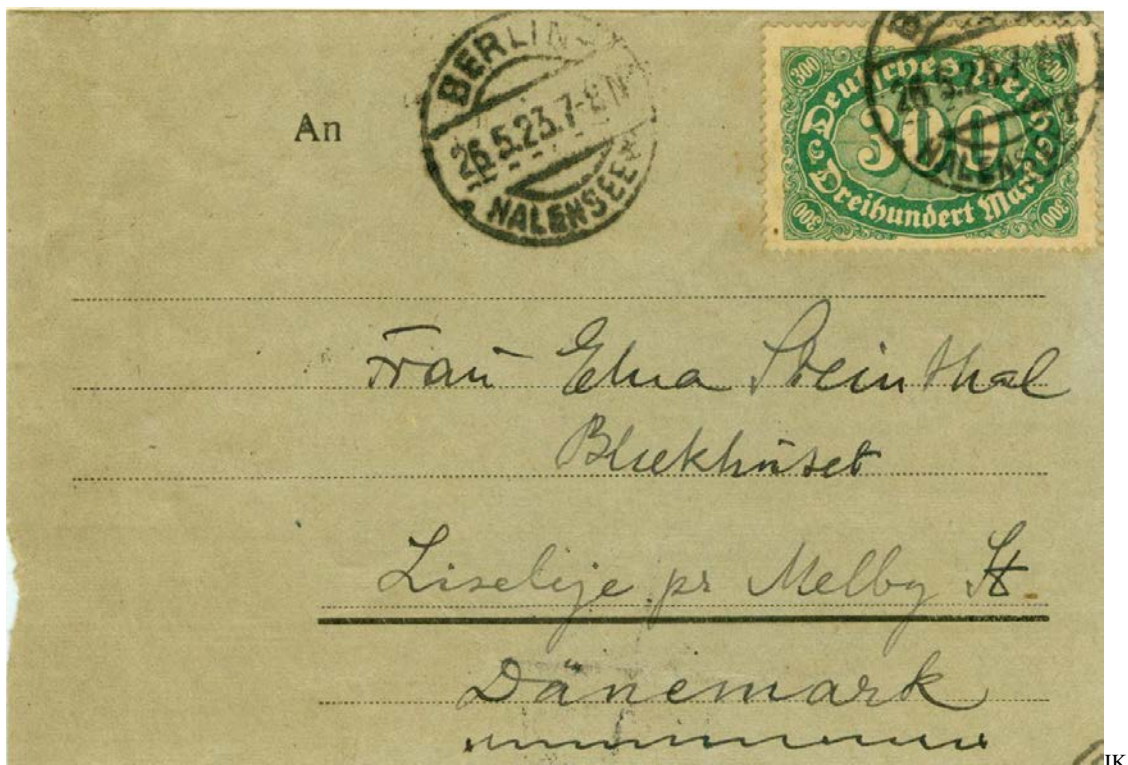 An
BERLIN
26.5.23.7-8 N
HALENSEE
300
Deutsches Reich
300
Dreihundert Mark
300 300
Frau Edna Steinthal
Blækhuset
Liseleje pr Melby St
Dänemark
JK